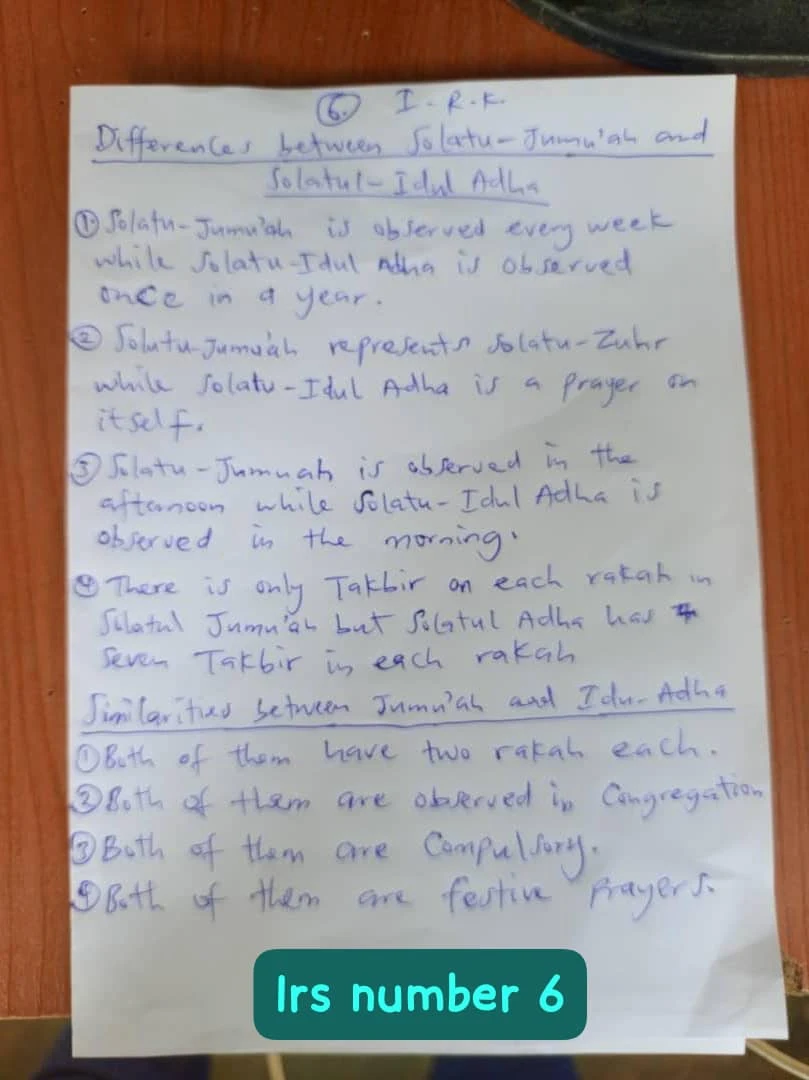 6. I-R-K.
Differences between Solatu-Jumu'ah and
Solatul-Idul Adha
① Solatu-Jumu'ah is observed every week
while Solatu-Idul Adha is observed
once in a year.
② Solutu-Jumu'ah represents Solatu-Zuhr
while Solatu-Idul Adha is a prayer on
itself.
③ Solatu-Jumuah is observed in the
afternoon while Solatu-Idul Adha is
observed in the morning.
④ There is only Takbir on each rakah in
Solatul Jumu'ah but Solatul Adha has
Seven Takbir in each rakah
Similarities between Jumu'ah and Idu-Adha
① Both of them have two rakah each.
② Both of them are observed in Congregation
③ Both of them are Compulsory.
④ Both of them are festive Prayers.
Irs number 6